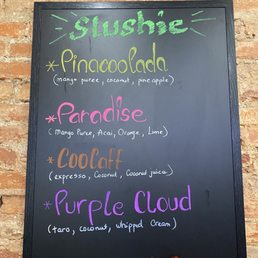 Slushie
*Pinacoolada
(mango puree, coconut, pineapple)
*Paradise
(Mango Puree, Acai, Orange, Lime)
*Coolaff
(expresso, Coconut, Coconut juica)
*Purple Cloud
(taro, coconut, whipped Cream)